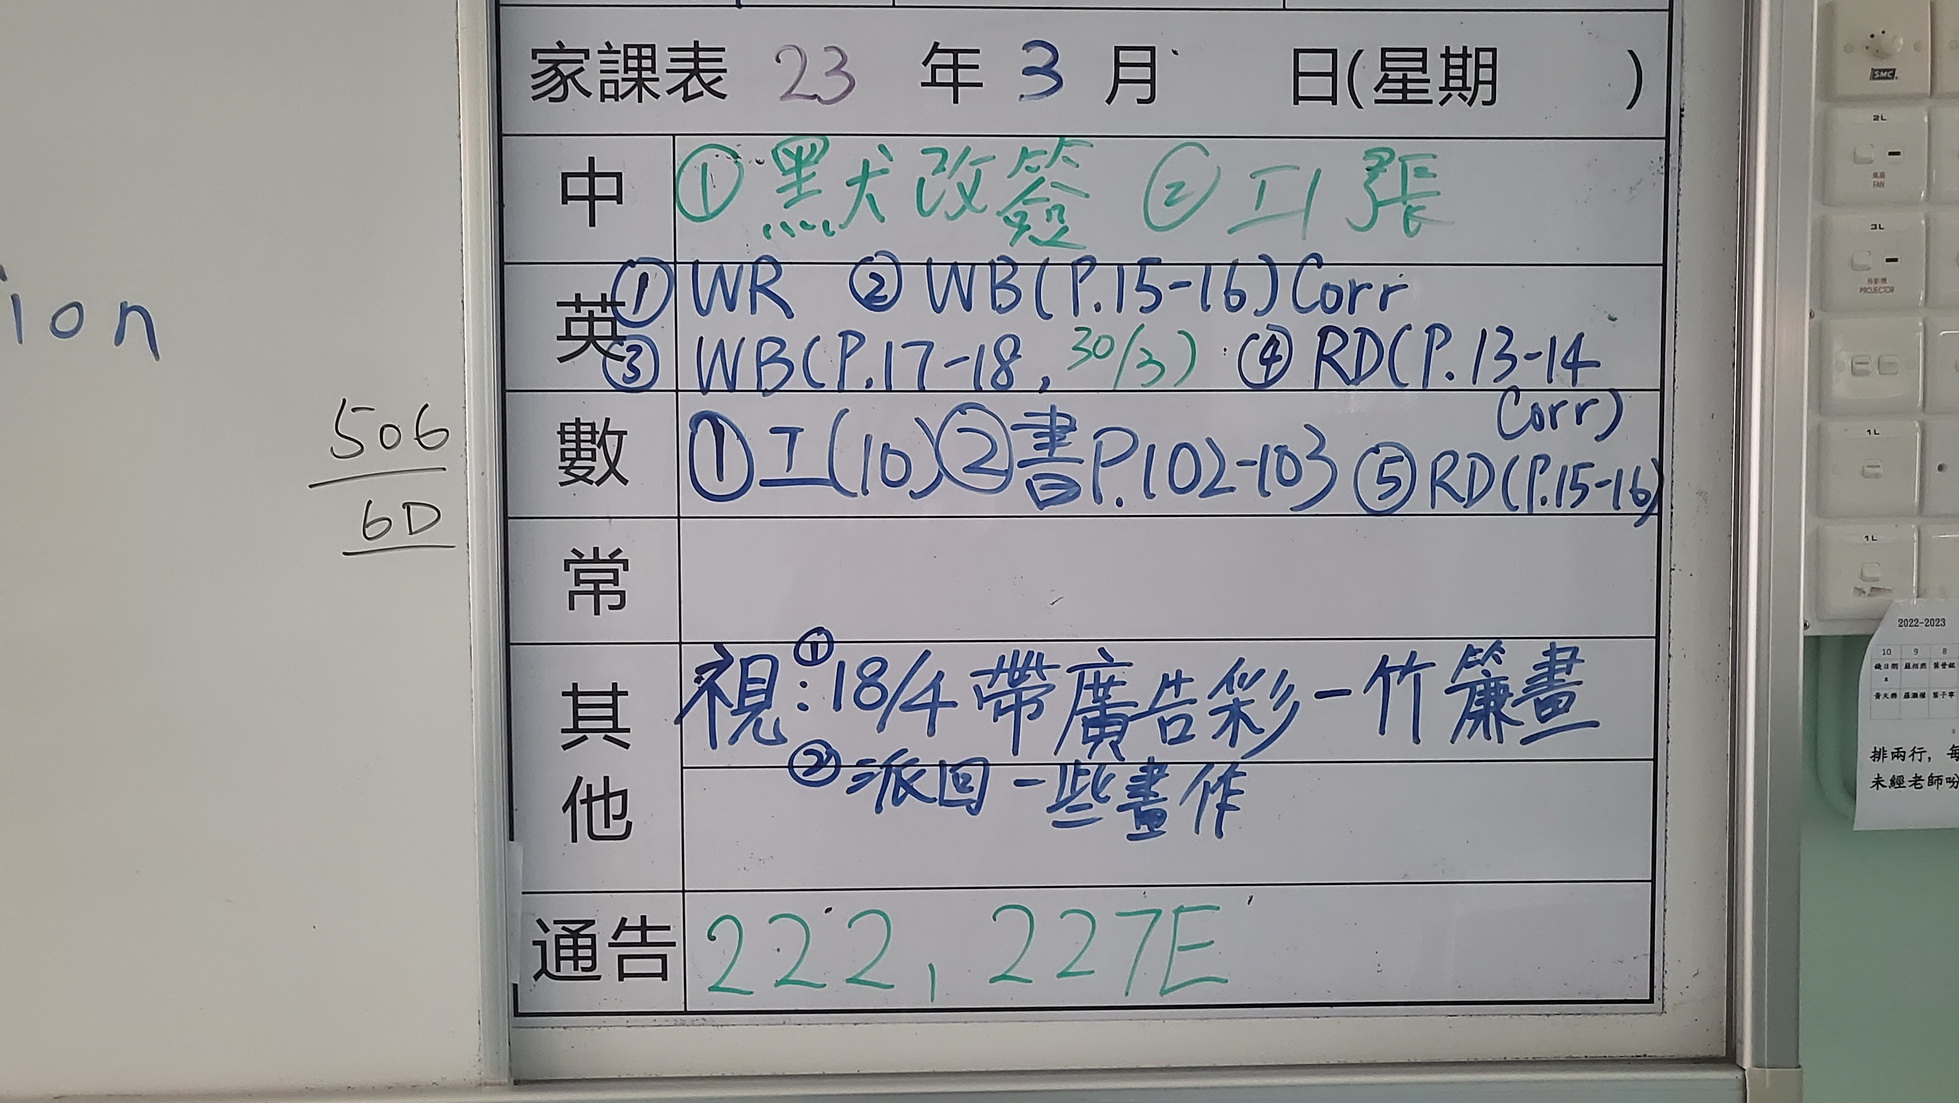 家課表 23 年 3 月 日(星期 )
中 ①默犬改簽 ②工1張
英 ①WR ②WB(P.15-16)Corr
③WB(P.17-18, 30/3) ④RD(P.13-14
Corr)
數 ①工(10)②書P.102-103 ⑤RD(P.15-16)
常
其他 視:①18/4帶廣告彩-竹簾畫
②派回一些畫作
通告 222, 227E
ion
506
6D
SMC
2L
FAN
3L
PROJECTOR
1L
1L
2022-2023
10 9 8
排兩行,每
未經老師吩